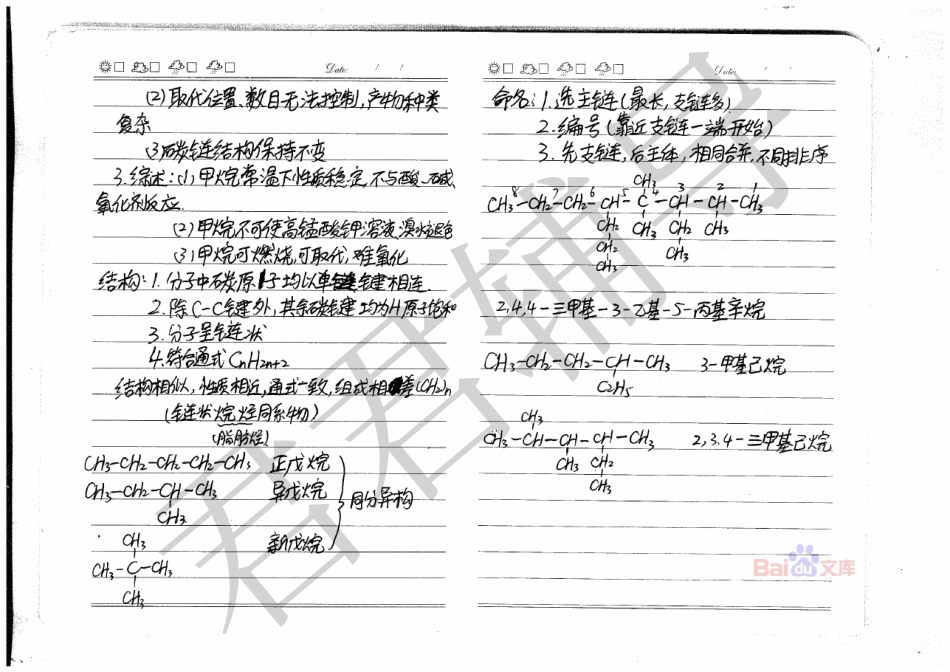 Date: / /
(2)取代位置、数目无法控制,产物种类
复杂
(3)碳链结构保持不变
3.综述:(1)甲烷常温下性质稳定,不与酸、碱、
氧化剂反应.
(2)甲烷不可使高锰酸钾溶液、溴水褪色
(3)甲烷可燃烧,可取代,难氧化
结构:1.分子中碳原子均以单键键建相连
2.除C-C键建外,其余碳键建均为H原子饱和
3.分子呈链状
4.符合通式CnH2n+2
结构相似,性质相近,通式一致,组成相差(CH2)n
(链状烷烃同系物)
(脂肪烃)
CH3-CH2-CH2-CH2-CH3 正戊烷
CH3-CH2-CH-CH3 异戊烷
同分异构
CH3
CH3 新戊烷
CH3-C-CH3
CH3
Date: / /
命名:1.选主链(最长,支链多)
2.编号(靠近支链一端开始)
3.先支链,后主体,相同合并,不同排序
CH3
8 7 6 5 4 3 2 1
CH3-CH2-CH2-CH-C-CH-CH-CH3
CH2 CH3 CH2 CH3
CH2 CH3
CH3
2,4,4-三甲基-3-乙基-5-丙基辛烷
CH3-CH2-CH2-CH-CH3 3-甲基己烷
C2H5
CH3
CH3-CH-CH-CH-CH3 2,3,4-三甲基己烷
CH3 CH2
CH3
君君辅导
Baidu文库